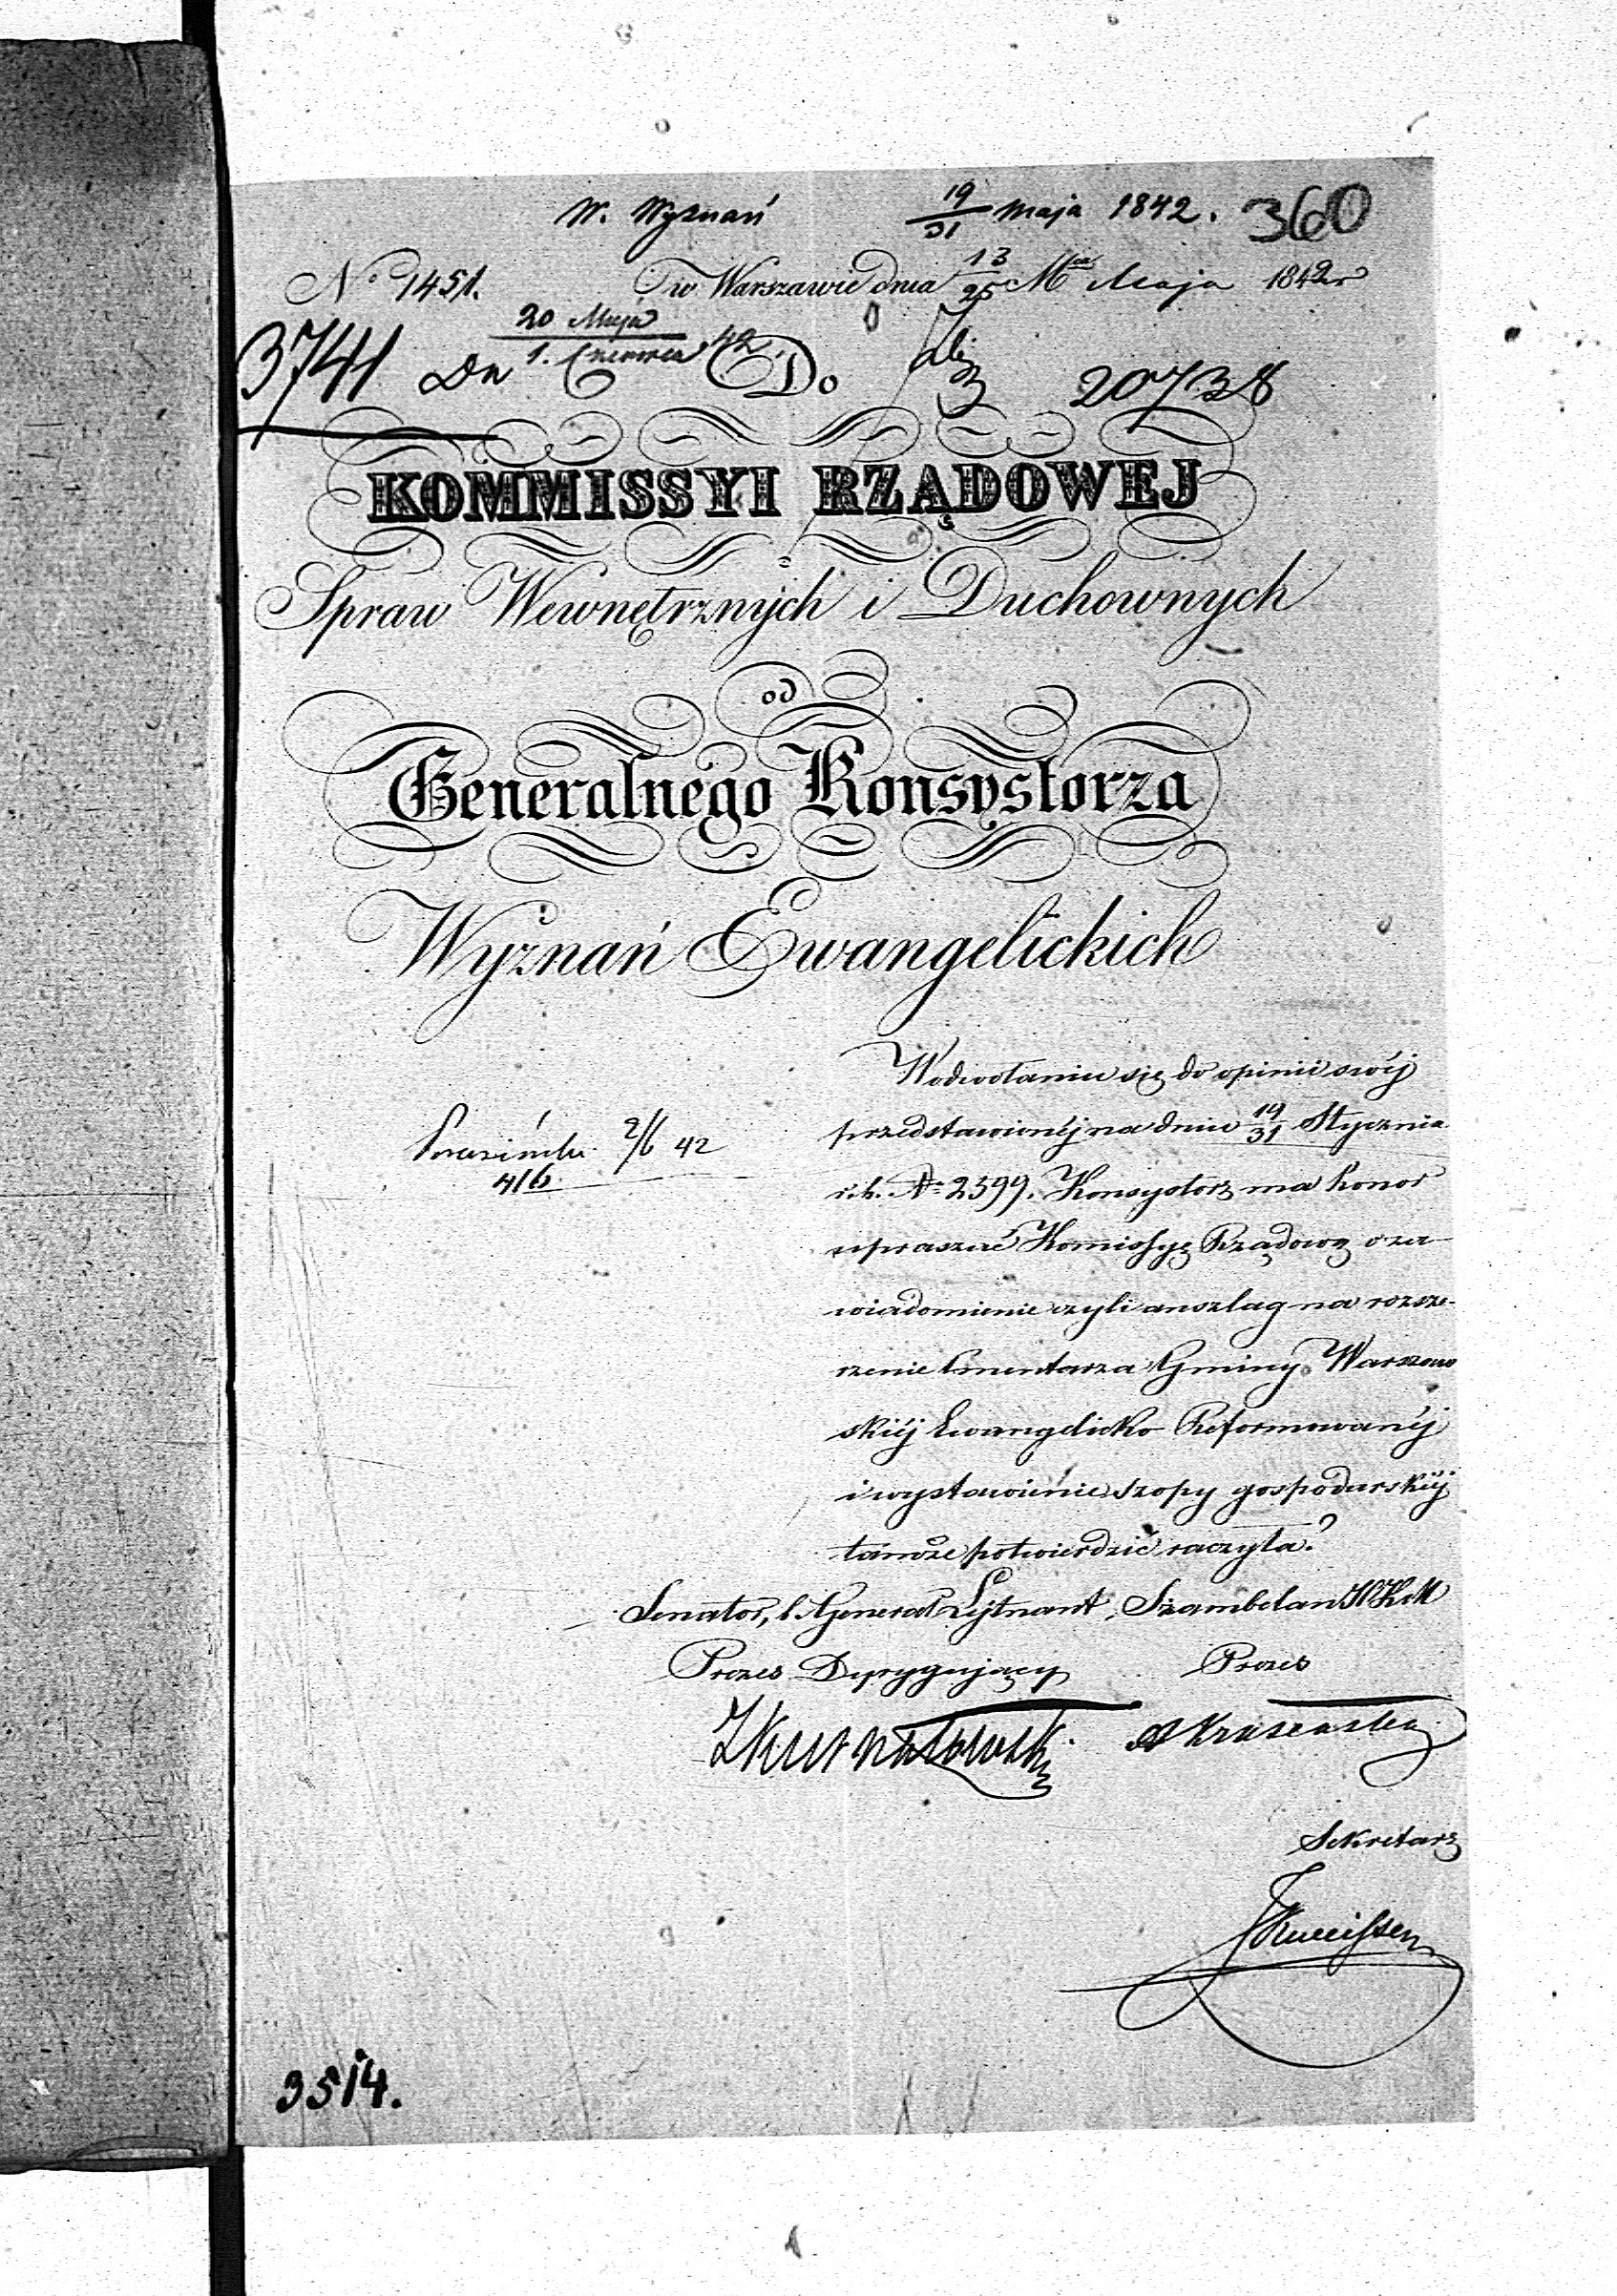 W. Wyznań 19/31 Maja 1842. 360
No 1451. w Warszawie dnia 13/25 Mca Maja 1842 r
3741 Dn 20 Maja/1. Czerwca 42 Do 20738
KOMMISSYI RZĄDOWEJ
Spraw Wewnętrznych i Duchownych
od
Generalnego Konsystorza
Wyznań Ewangelickich
W odwołaniu się do opinii swéj
przedstawionéj na dniu 19/31 Stycznia
2/6 42
r. b. No 2599. Konsystorz ma honor
416.
upraszać Komissyę Rządową o za-
wiadomienie czyli anszlag na rozsze-
rzenie Cmentarza Gminy Warszaw
skiéj Ewangelicko Reformowanéj
i wystawienie szopy gospodarskiéj
tamże potwierdzić raczyła?
Senator, Generał Lejtnant, Szambelan
Prezes Dyrygujący Prezes
Sekretarz
3514.